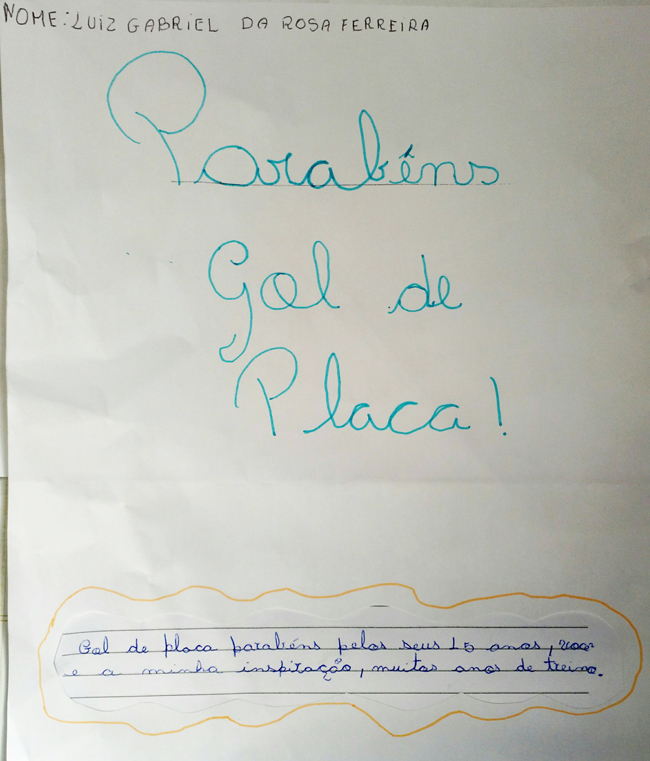 NOME: LUIZ GABRIEL DA ROSA FERREIRA
Parabéns
Gol de
Placa!
Gol de placa parabéns pelos seus 15 anos, voce
e a minha inspiração, muitos anos de treino.